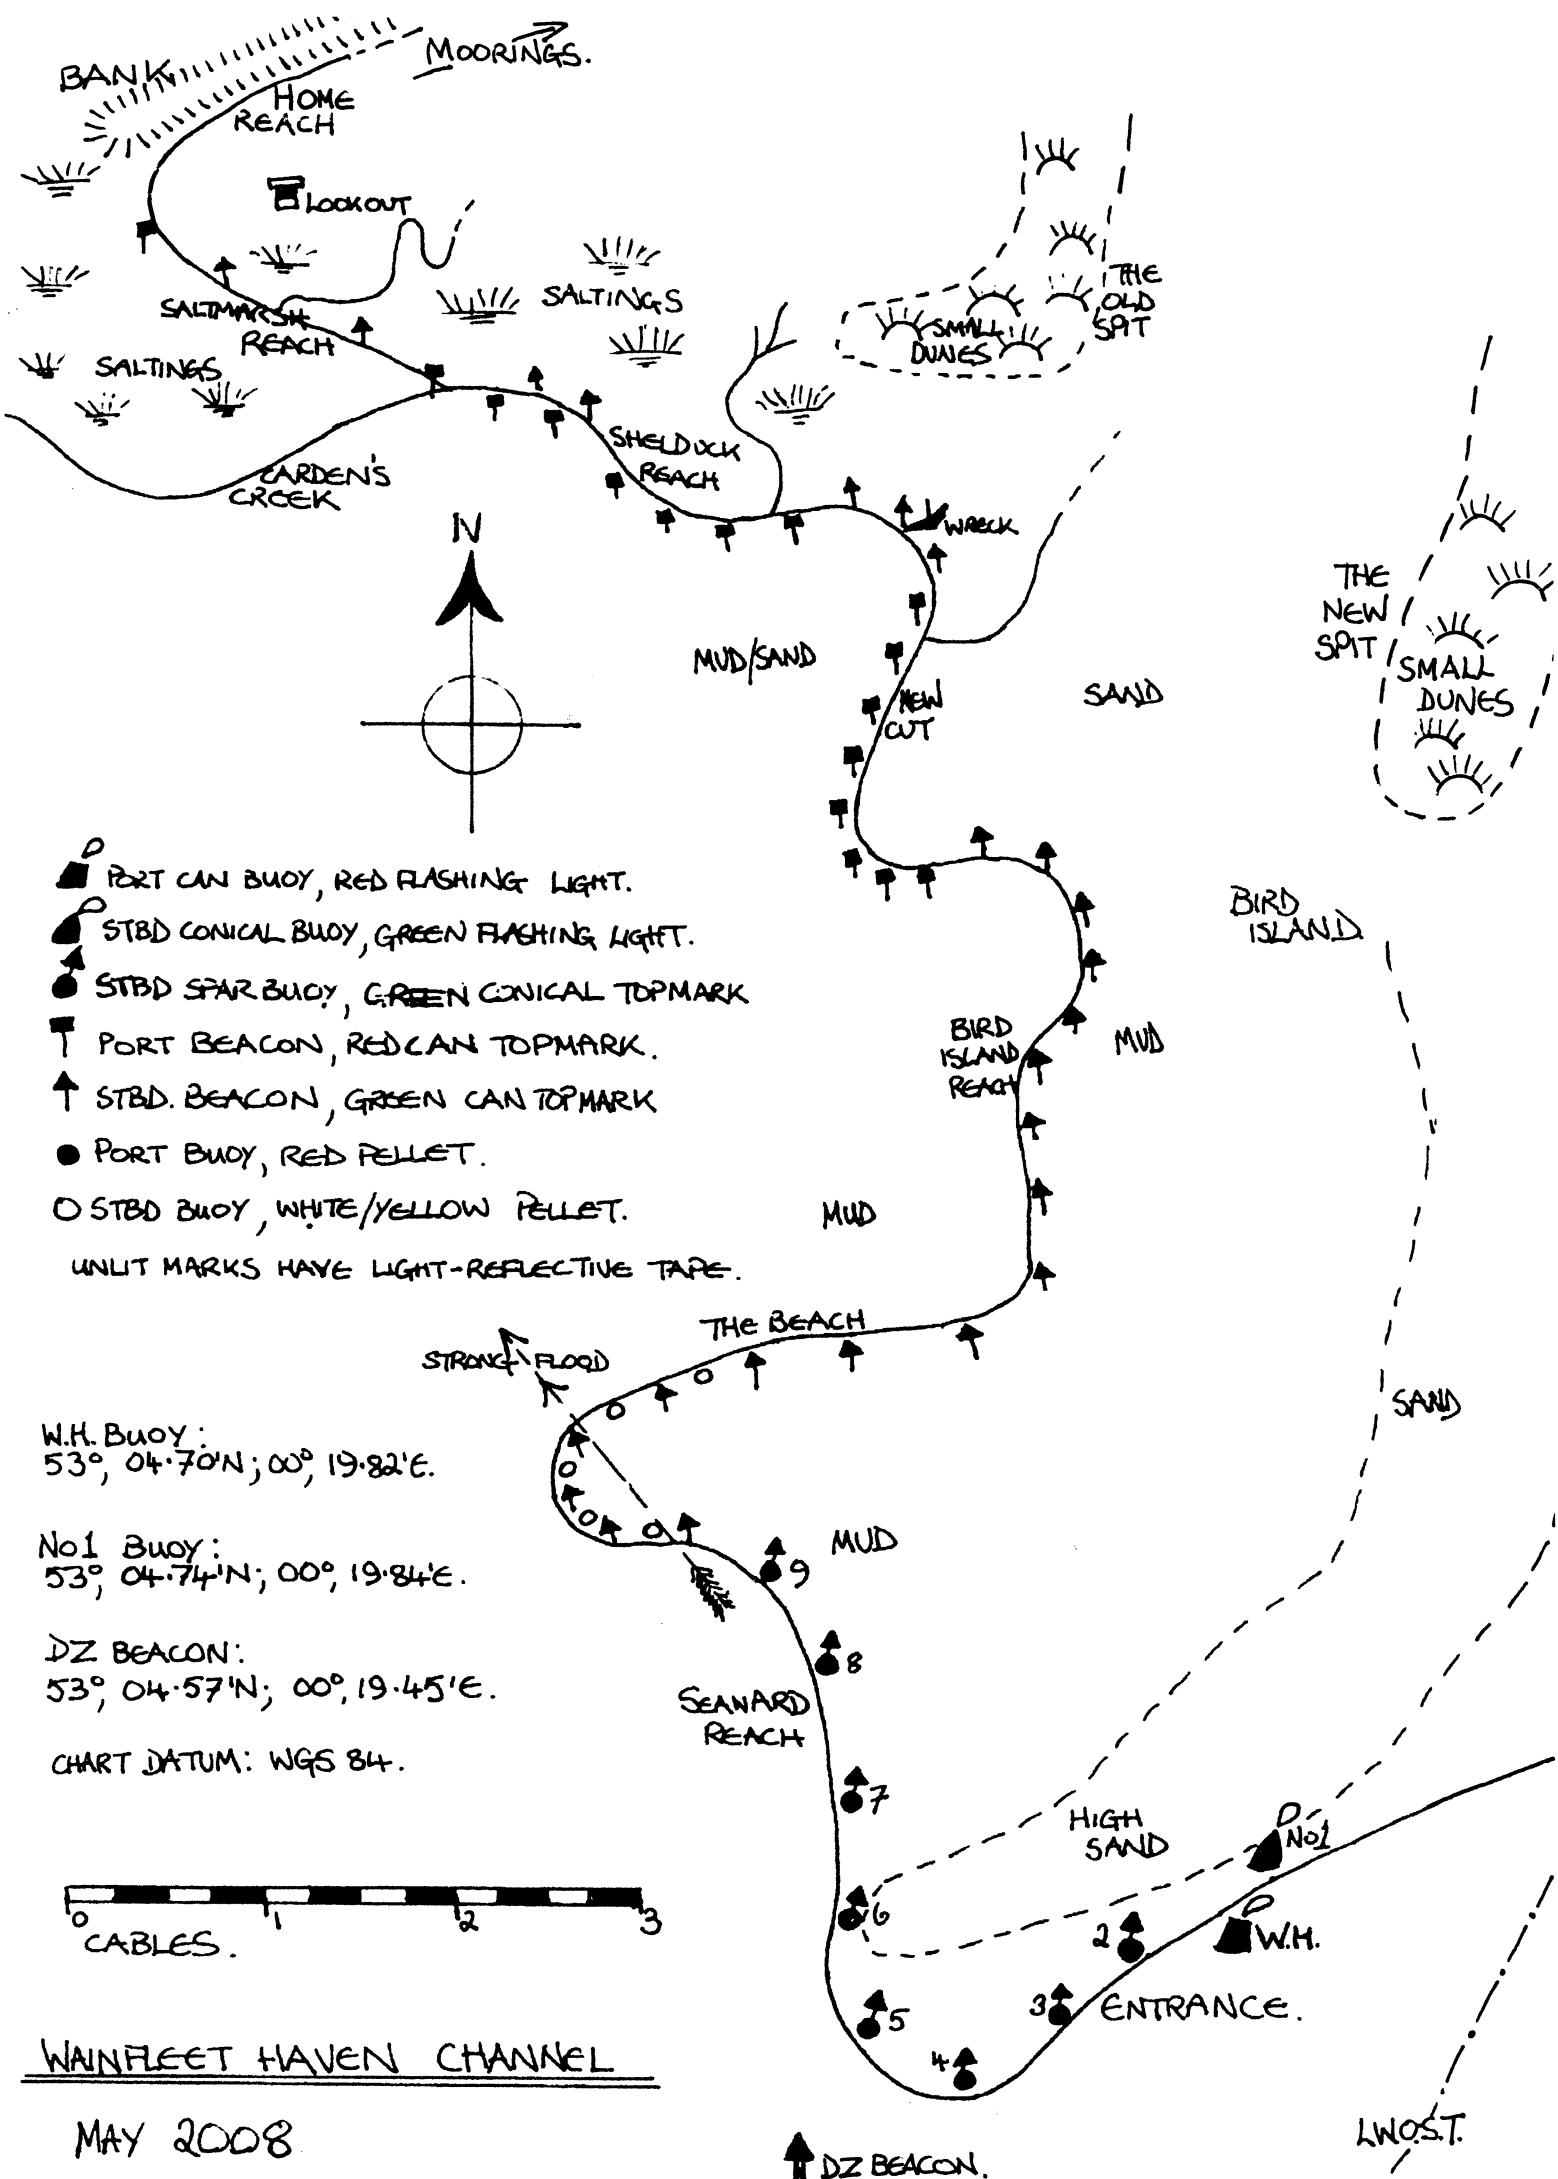 BANK
MOORINGS.
HOME
REACH
LOOKOUT
SALTMARSH
REACH
SALTINGS
SALTINGS
THE
OLD
SPIT
SMALL
DUNES
SHELDUCK
REACH
CARDEN'S
CREEK
WRECK
N
THE
NEW
SPIT
SMALL
DUNES
MUD/SAND
SAND
NEW
CUT
PORT CAN BUOY, RED FLASHING LIGHT.
STBD CONICAL BUOY, GREEN FLASHING LIGHT.
STBD SPAR BUOY, GREEN CONICAL TOPMARK
PORT BEACON, RED CAN TOPMARK.
STBD. BEACON, GREEN CAN TOPMARK
PORT BUOY, RED PELLET.
STBD BUOY, WHITE/YELLOW PELLET.
UNLIT MARKS HAVE LIGHT-REFLECTIVE TAPE.
BIRD
ISLAND.
BIRD
ISLAND
REACH
MUD
MUD
THE BEACH
STRONG FLOOD
SAND
W.H. BUOY:
53°, 04·70'N; 00°, 19·82'E.
No1 BUOY:
53°, 04·74'N; 00°, 19·84'E.
DZ BEACON:
53°, 04·57'N; 00°, 19·45'E.
CHART DATUM: WGS 84.
MUD
9
8
SEAWARD
REACH
7
HIGH
SAND
No1
6
2
W.H.
5
3
ENTRANCE.
4
0 1 2 3
CABLES.
WAINFLEET HAVEN CHANNEL
MAY 2008
L.W.O.S.T.
DZ BEACON.